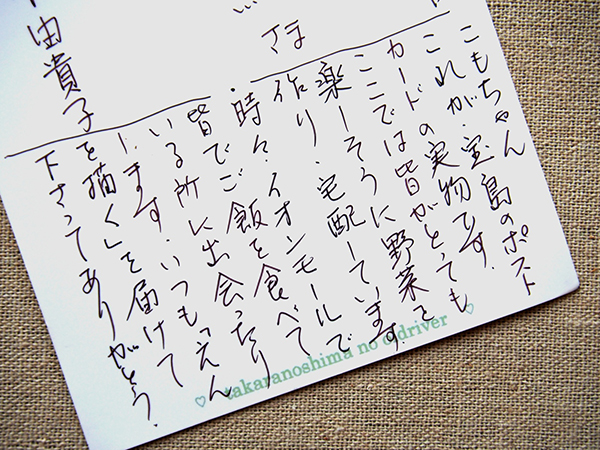 こもちゃん
これが、宝島のポスト
カードの実物です。
ここでは皆がとっても
楽しそうに野菜を
作り、宅配しています。
時々、イオンモールで
皆でご飯を食べて
いる所に出会ったり
します。いつも「えん
を描く」を届けて
下さってありがとう。
さま
由貴子
takaranoshima no driver